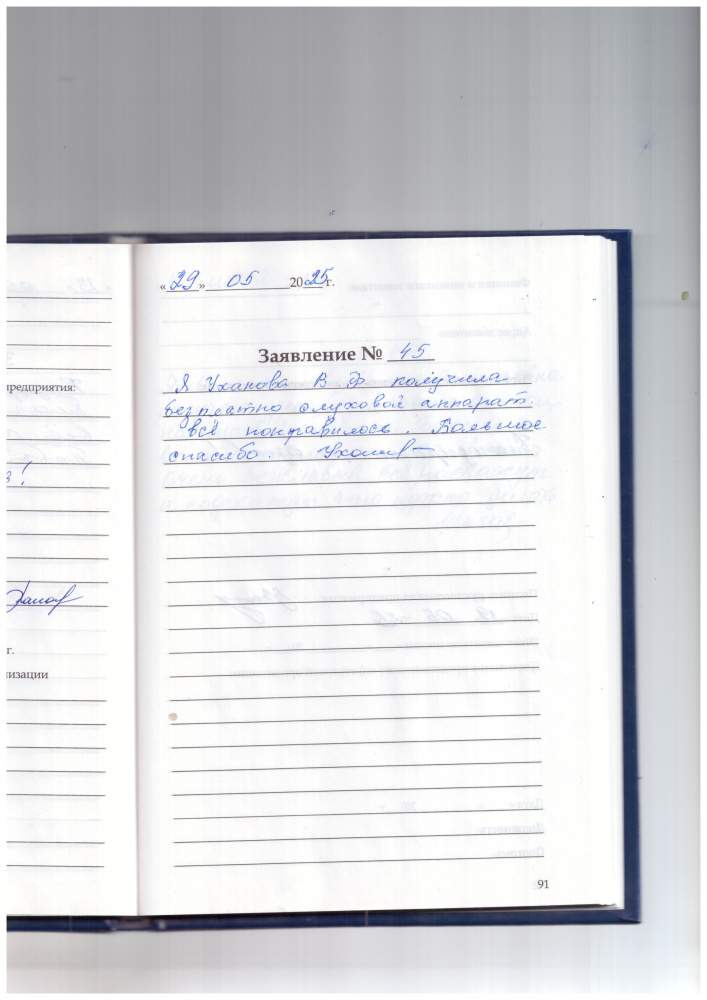 «29» 05 2025 г.
Заявление № 45
редприятия:
Я Уханова В Ф получила
безплатно слуховой аппарат.
всё понравилось. Большое
спасибо.
г.
изации
91